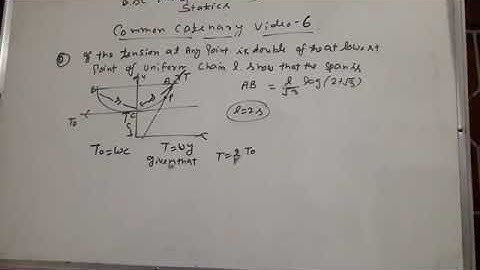 Statics
Common Catenary Video-6
If the tension at Any Point is double of that lowest
Point of uniform chain l show that the span is
AB = l/√3 log(2+√3)
l=2s
B
A
T
P
s
s
C
T0
T0=wc
T=wy
given that
T=2T0